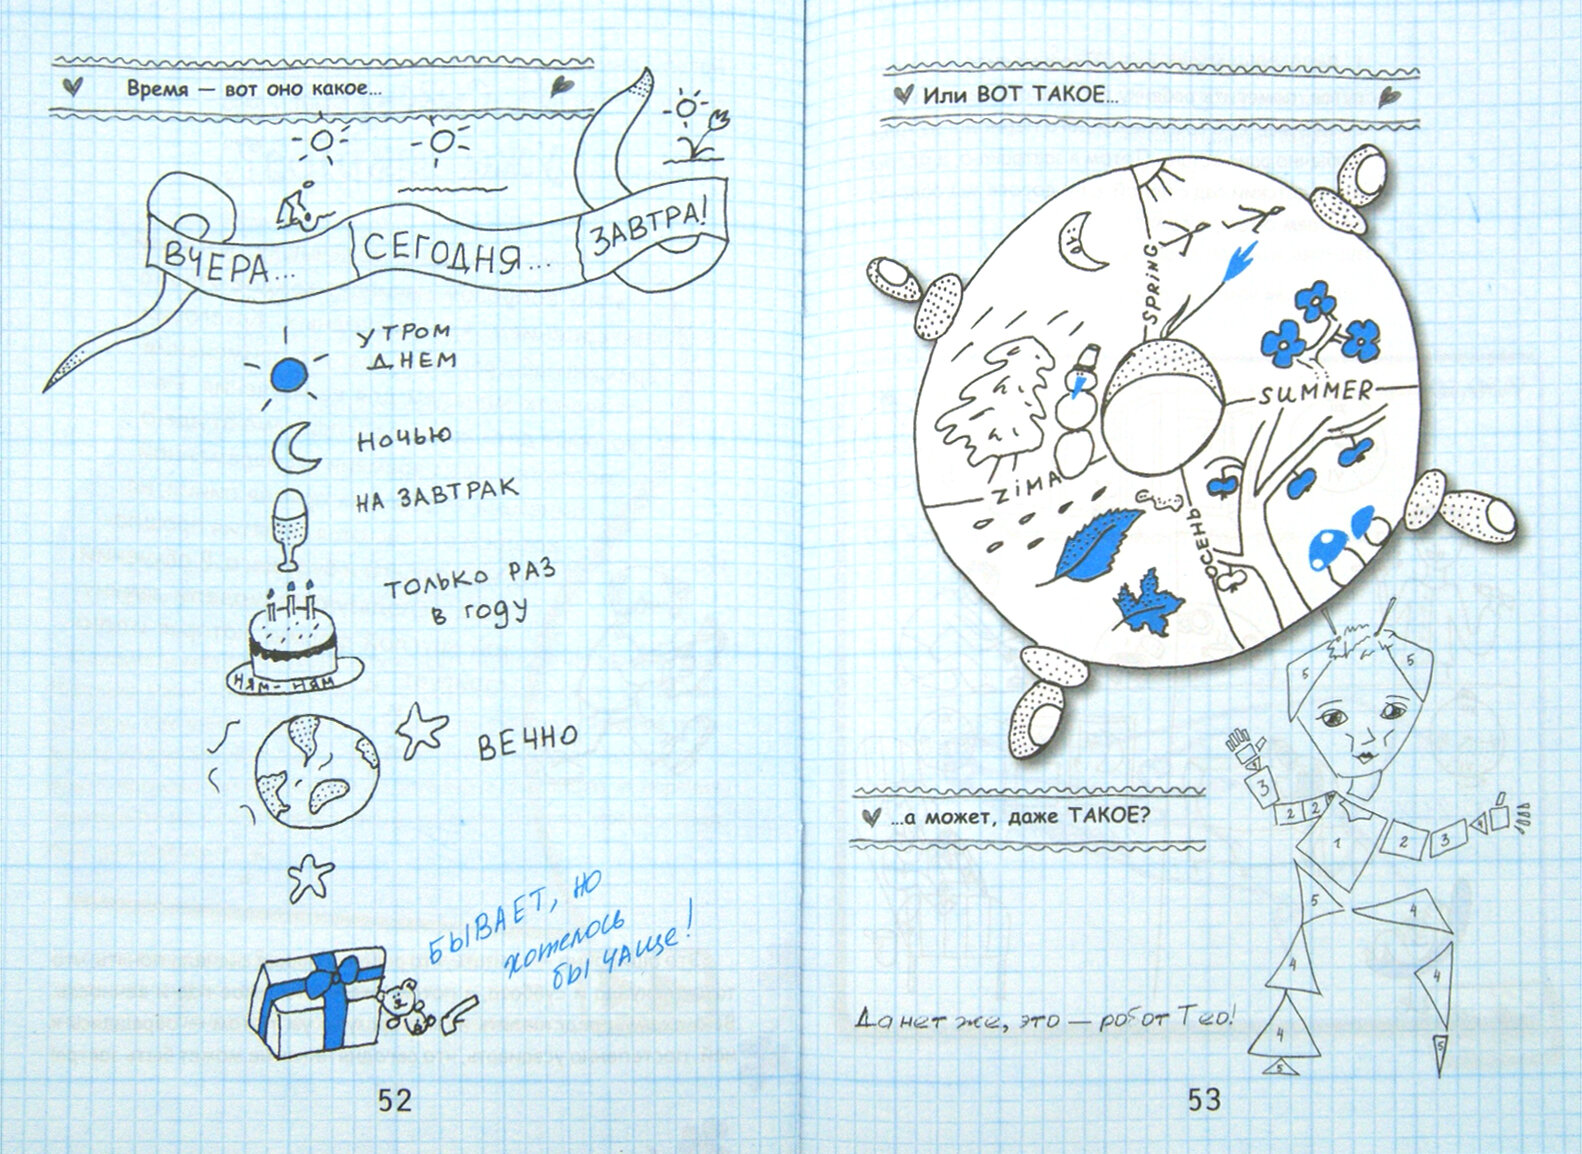 Время — вот оно какое...
ВЧЕРА...
СЕГОДНЯ...
ЗАВТРА!
УТРОМ
ДНЕМ
НОЧЬЮ
НА ЗАВТРАК
ТОЛЬКО РАЗ
В ГОДУ
НЯМ-НЯМ
ВЕЧНО
БЫВАЕТ, НО
хотелось
БЫ ЧАЩЕ!
52
Или ВОТ ТАКОЕ...
SPRING
SUMMER
ZIMA
ОСЕНЬ
...а может, даже ТАКОЕ?
5
5
3
2
2
1
2
3
4
5
4
4
4
4
5
5
Да нет же, это — робот Тео!
53